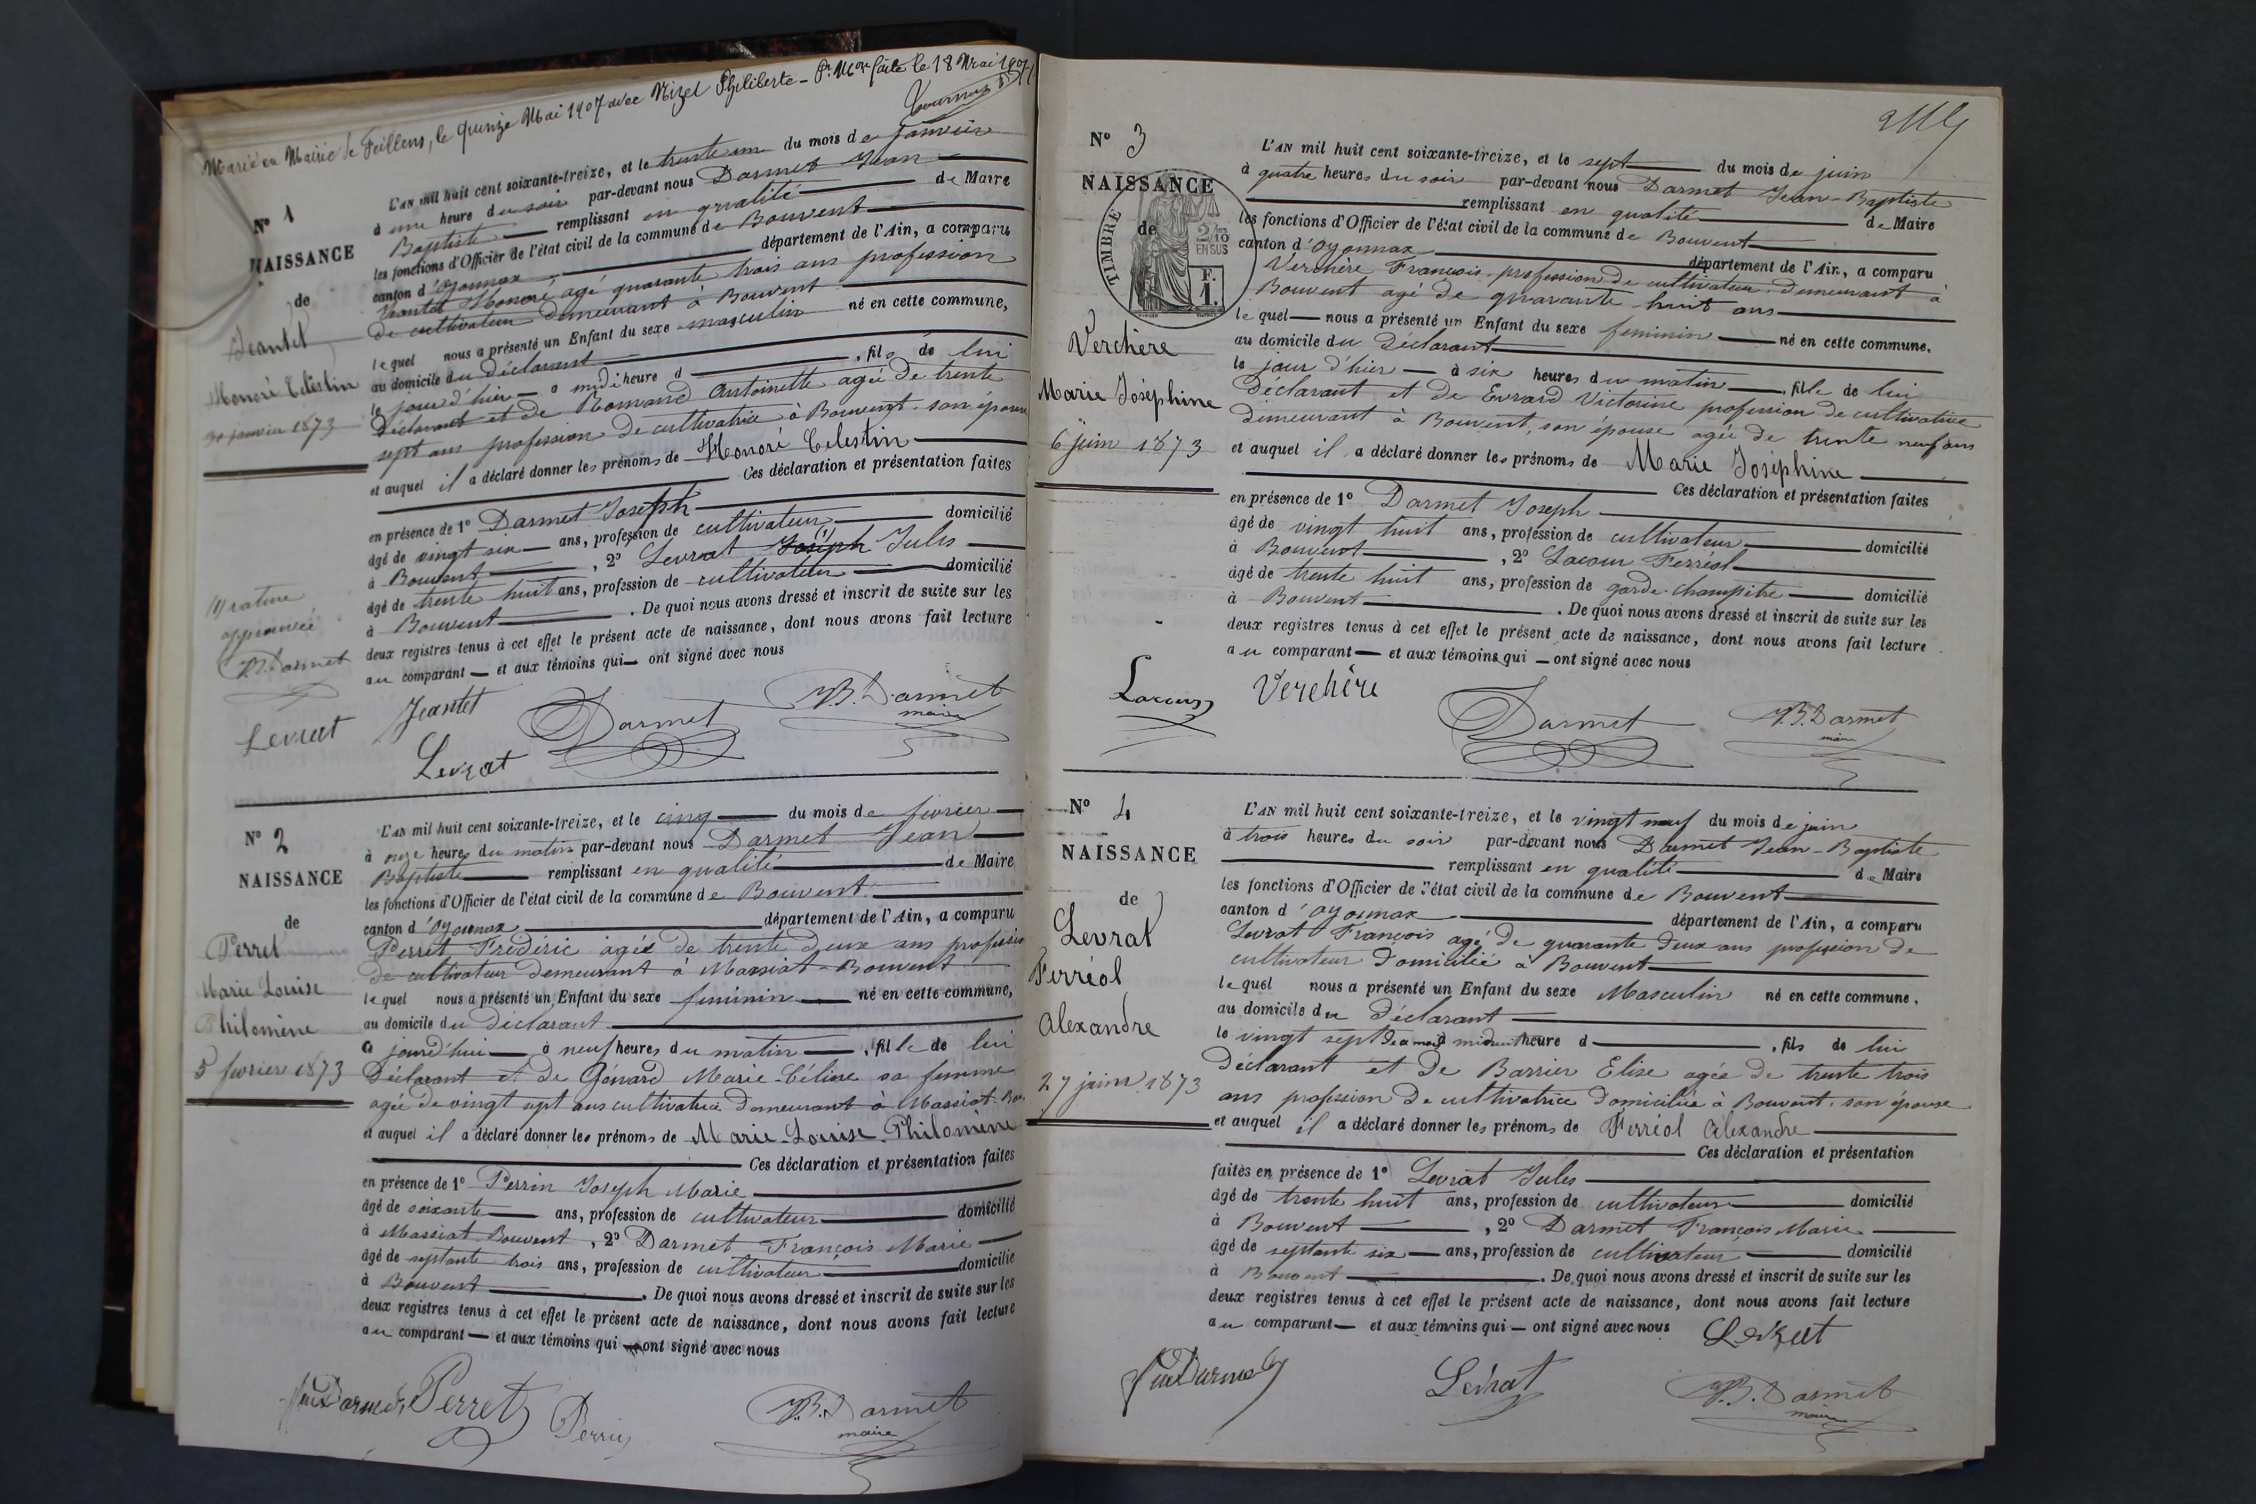 Marié en Mairie de Feillens, le quinze Mai 1907 avec Nizel Philiberte - faite le 18 Mai 1907
N° 1
NAISSANCE
de
Jeantet
Honoré Celestin
30 janvier 1873
L'AN mil huit cent soixante-treize, et le trente un du mois de janvier
à une heure du soir par-devant nous Darmet Jean
Baptiste remplissant en qualité de Maire
les fonctions d'Officier de l'état civil de la commune de Bouvent
canton d'Oyonnax département de l'Ain, a comparu
Jeantet Honoré agé quarante trois ans profession
de cultivateur demeurant à Bouvent
lequel nous a présenté un Enfant du sexe masculin né en cette commune,
au domicile du déclarant
le jour d'hier à midi heure d , fils de lui
Déclarant et de Romand Antoinette agée de trente
sept ans profession de cultivatrice à Bouvent son épouse
et auquel il a déclaré donner les prénoms de Honoré Celestin
Ces déclaration et présentation faites
en présence de 1° Darmet Joseph
âgé de vingt six ans, profession de cultivateur domicilié
à Bouvent , 2° Levrat Joseph Jules
âgé de trente huit ans, profession de cultivateur domicilié
à Bouvent . De quoi nous avons dressé et inscrit de suite sur les
deux registres tenus à cet effet le présent acte de naissance, dont nous avons fait lecture
au comparant et aux témoins qui ont signé avec nous
(1) rature
approuvée
JB. Darmet
Levrat Jeantet Darmet J.B. Darmet
maire
Levrat
N° 2
NAISSANCE
de
Perret
Marie Louise
Philomène
5 fevrier 1873
L'AN mil huit cent soixante-treize, et le cinq du mois de fevrier
à onze heures du matin par-devant nous Darmet Jean
Baptiste remplissant en qualité de Maire
les fonctions d'Officier de l'état civil de la commune de Bouvent
canton d'Oyonnax département de l'Ain, a comparu
Perret Frédéric âgée de trente deux ans profession
de cultivateur demeurant à Massiat Bouvent
lequel nous a présenté un Enfant du sexe feminin né en cette commune,
au domicile du Déclarant
a jourd'hui à neuf heures du matin , fille de lui
Déclarant et de Génard Marie Céline sa femme
agée de vingt sept ans cultivatrice demeurant à Massiat Bou
et auquel il a déclaré donner les prénoms de Marie Louise Philomène
Ces déclaration et présentation faites
en présence de 1° Perrin Joseph Marie
âgé de soixante ans, profession de cultivateur domicilié
à Massiat Bouvent , 2° Darmet François Marie
âgé de septante trois ans, profession de cultivateur domicilié
à Bouvent . De quoi nous avons dressé et inscrit de suite sur les
deux registres tenus à cet effet le présent acte de naissance, dont nous avons fait lecture
au comparant et aux témoins qui ont signé avec nous
Perret Perrin J.B. Darmet
maire
N° 3
NAISSANCE
de
TIMBRE
2/10
EN SUS
F.
1.
Verchère
Marie Joséphine
6 juin 1873
L'AN mil huit cent soixante-treize, et le sept du mois de juin
à quatre heures du soir par-devant nous Darmet Jean-Baptiste
remplissant en qualité de Maire
les fonctions d'Officier de l'état civil de la commune de Bouvent
canton d'Oyonnax département de l'Ain, a comparu
Verchère François profession de cultivateur demeurant à
Bouvent agé de quarante huit ans
lequel nous a présenté un Enfant du sexe feminin né en cette commune.
au domicile du Déclarant
le jour d'hier à six heures du matin , fille de lui
déclarant et de Evrard Victorine profession de cultivatrice
demeurant à Bouvent, son épouse agée de trente neuf ans
et auquel il a déclaré donner les prénoms de Marie Joséphine
Ces déclaration et présentation faites
en présence de 1° Darmet Joseph
âgé de vingt huit ans, profession de cultivateur domicilié
à Bouvent , 2° Lacour Ferréol
âgé de trente huit ans, profession de garde-champêtre domicilié
à Bouvent . De quoi nous avons dressé et inscrit de suite sur les
deux registres tenus à cet effet le présent acte de naissance, dont nous avons fait lecture
au comparant et aux témoins qui ont signé avec nous
Lacour Verchère Darmet J.B. Darmet
maire
N° 4
NAISSANCE
de
Levrat
Ferréol
Alexandre
27 juin 1873
L'AN mil huit cent soixante-treize, et le vingt neuf du mois de juin
à trois heures du soir par-devant nous Darmet Jean-Baptiste
remplissant en qualité de Maire
les fonctions d'Officier de l'état civil de la commune de Bouvent
canton d'Oyonnax département de l'Ain, a comparu
Levrat François agé de quarante deux ans profession de
cultivateur domicilié à Bouvent
lequel nous a présenté un Enfant du sexe Masculin né en cette commune.
au domicile du Déclarant
le vingt sept heure d , fils de lui
Déclarant et de Barrier Elise agée de trente trois
ans profession de cultivatrice domiciliée à Bouvent, son épouse
et auquel il a déclaré donner les prénoms de Ferréol Alexandre
Ces déclaration et présentation
faites en présence de 1° Levrat Jules
âgé de trente huit ans, profession de cultivateur domicilié
à Bouvent , 2° Darmet François Marie
âgé de septante six ans, profession de cultivateur domicilié
à Bouvent . De quoi nous avons dressé et inscrit de suite sur les
deux registres tenus à cet effet le présent acte de naissance, dont nous avons fait lecture
au comparant et aux témoins qui ont signé avec nous Levrat
Levrat J.B. Darmet
maire